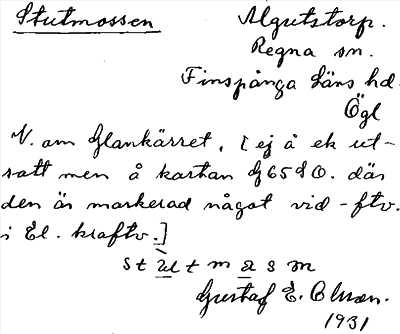 Stutmossen
Algutstorp.
Regna sn.
Finspånga läns hd.
Ögl
V. om Glankärret. [ej å ek ut-
satt men å kartan G65d0. där
den är markerad något vid -ftv.
i El. kraftv.]
stù̲tma̲sm
Gustaf E. Olsson.
1931